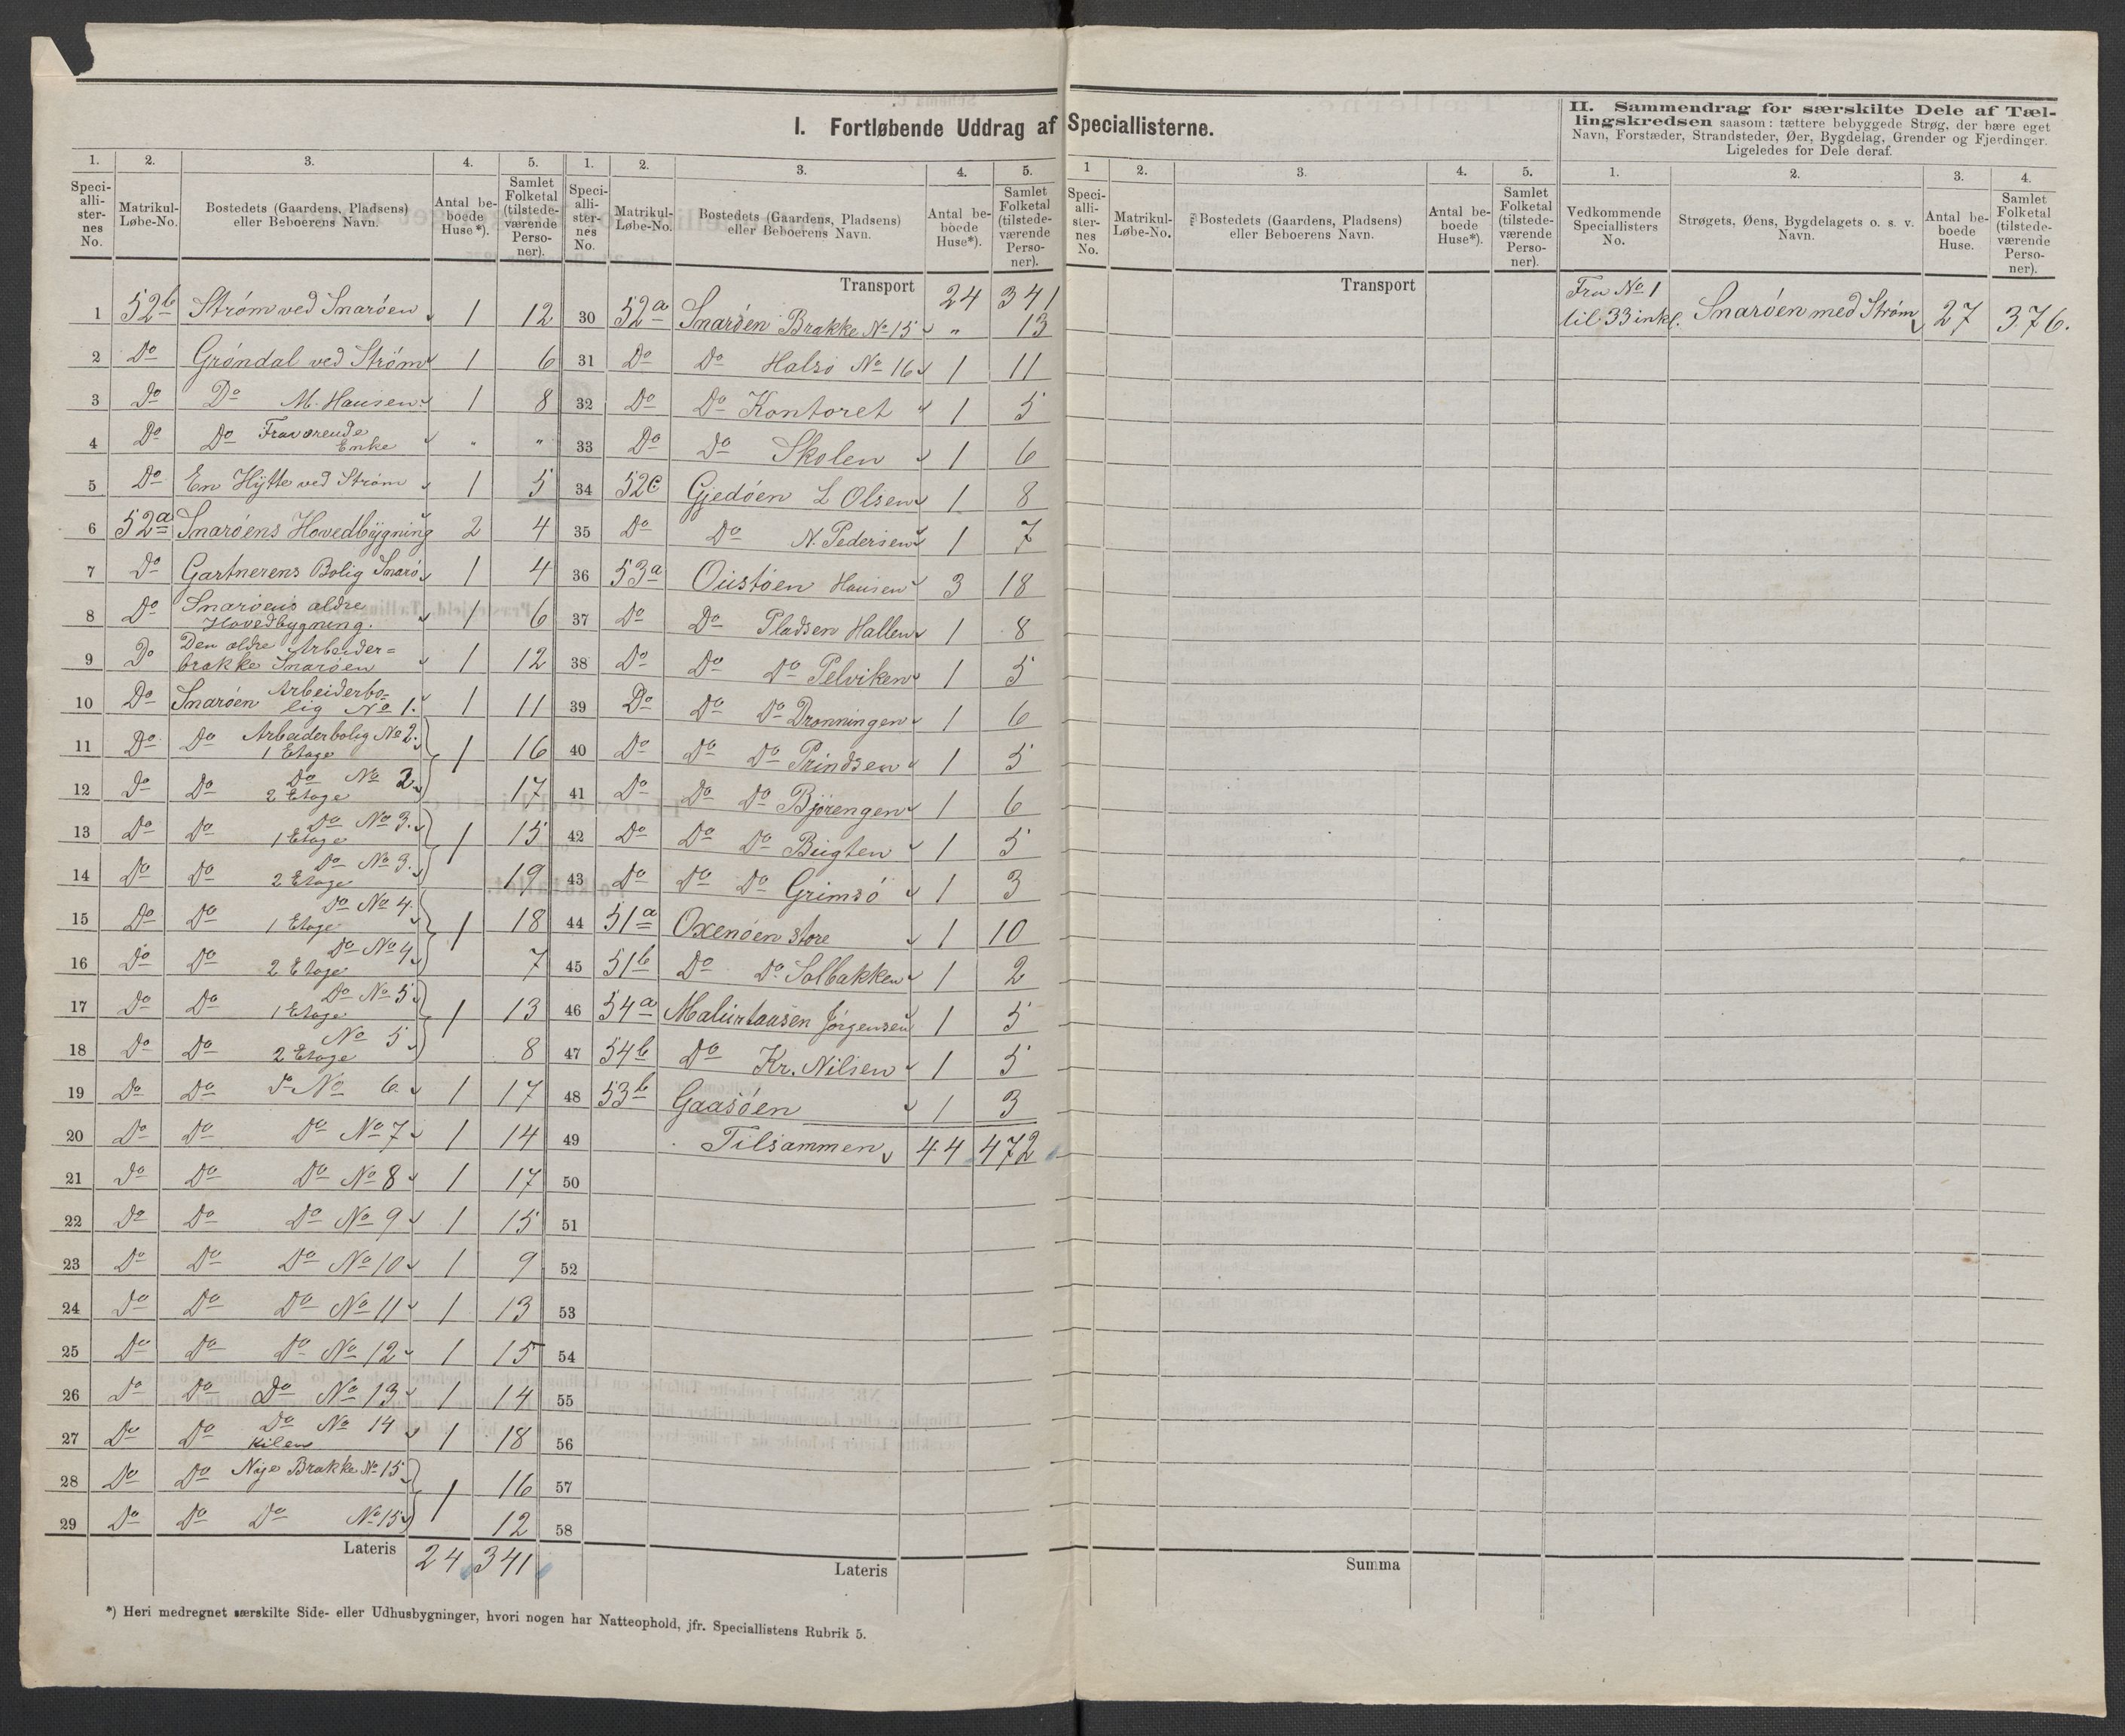 I. Fortløbende Uddrag af Speciallisterne.
1. 2. 3. 4. 5.
Speci-alli-ster-nes No. Matrikul-Løbe-No. Bostedets (Gaardens, Pladsens) eller Beboerens Navn. Antal be-boede Huse*). Samlet Folketal (tilstede-værende Perso-ner).
1 52b Strøm ved Snarøen 1 12
2 Do Grøndal ved Strøm 1 6
3 Do Do M. Hansen 1 8
4 Do Do Fraværende Enke " "
5 Do En Hytte ved Strøm 1 5
6 52a Snarøens Hovedbygning 2 4
7 Do Gartnerens Bolig Snarø 1 4
8 Do Snarøens ældre Hovedbygning. 1 6
9 Do Den ældre Arbeider=brakke Snarøen 1 12
10 Do Snarøen Arbeiderbo=lig No 1. 1 11
11 Do Do Arbeiderbolig No 2. 1 Etage 1 16
12 Do Do Do No 2 2 Etage 17
13 Do Do Do No 3. 1 Etage 1 15
14 Do Do Do No 3. 2 Etage 19
15 Do Do Do No 4. 1 Etage 1 18
16 Do Do Do No 4 2 Etage 7
17 Do Do Do No 5 1 Etage 1 13
18 Do Do No 5 2 Etage 8
19 Do Do Do No 6. 1 17
20 Do Do Do No 7 1 14
21 Do Do Do No 8 1 17
22 Do Do Do No 9 1 15
23 Do Do Do No 10 1 9
24 Do Do Do No 11 1 13
25 Do Do Do No 12 1 15
26 Do Do Do No 13 1 14
27 Do Do Do No 14 Kilen 1 18
28 Do Do Nye Brakke No 15 1 16
29 Do Do Do No 15 12
Lateris 24 341
*) Heri medregnet særskilte Side- eller Udhusbygninger, hvori nogen har Natteophold, jfr. Speciallistens Rubrik 5.
1. 2. 3. 4. 5.
Speci-alli-ster-nes No. Matrikul-Løbe-No. Bostedets (Gaardens, Pladsens) eller Beboerens Navn. Antal be-boede Huse*). Samlet Folketal (tilstede-værende Perso-ner).
Transport 24 341
30 52a Snarøen Brakke No 15 " 13
31 Do Do Halsø No 16 1 11
32 Do Do Kontoret 1 5
33 Do Do Skolen 1 6
34 52c Gjedøen L Olsen 1 8
35 Do Do N. Pedersen 1 7
36 53a Oustøen Hansen 3 18
37 Do Do Pladsen Hallen 1 8
38 Do Do Do Pelviken 1 5
39 Do Do Do Dronningen 1 6
40 Do Do Do Prindsen 1 5
41 Do Do Do Bjørengen 1 6
42 Do Do Do Bugten 1 5
43 Do Do Do Grimsø 1 3
44 51a Oxenøen store 1 10
45 51b Do Do Solbakken 1 2
46 54a Jørgensen 1 5
47 54b Do Kr. Nilsen 1 5
48 53b Gaasøen 1 3
49 Tilsammen 44 472
50
51
52
53
54
55
56
57
58
Lateris
1 2. 3. 4. 5.
Speci-alli-ster-nes No. Matrikul-Løbe-No. Bostedets (Gaardens, Pladsens) eller Beboerens Navn. Antal be-boede Huse*). Samlet Folketal (tilstede-værende Perso-ner).
Transport
Summa
II. Sammendrag for særskilte Dele af Tæl-
lingskredsen saasom: tættere bebyggede Strøg, der bære eget
Navn, Forstæder, Strandsteder, Øer, Bygdelag, Grender og Fjerdinger.
Ligeledes for Dele deraf.
1. 2. 3. 4.
Vedkommende Speciallisters No. Strøgets, Øens, Bygdelagets o. s. v. Navn. Antal be-boede Huse. Samlet Folketal (tilstede-værende Perso-ner).
Fra No 1 til 33 inkl. Snarøen med Strøm 27 376.